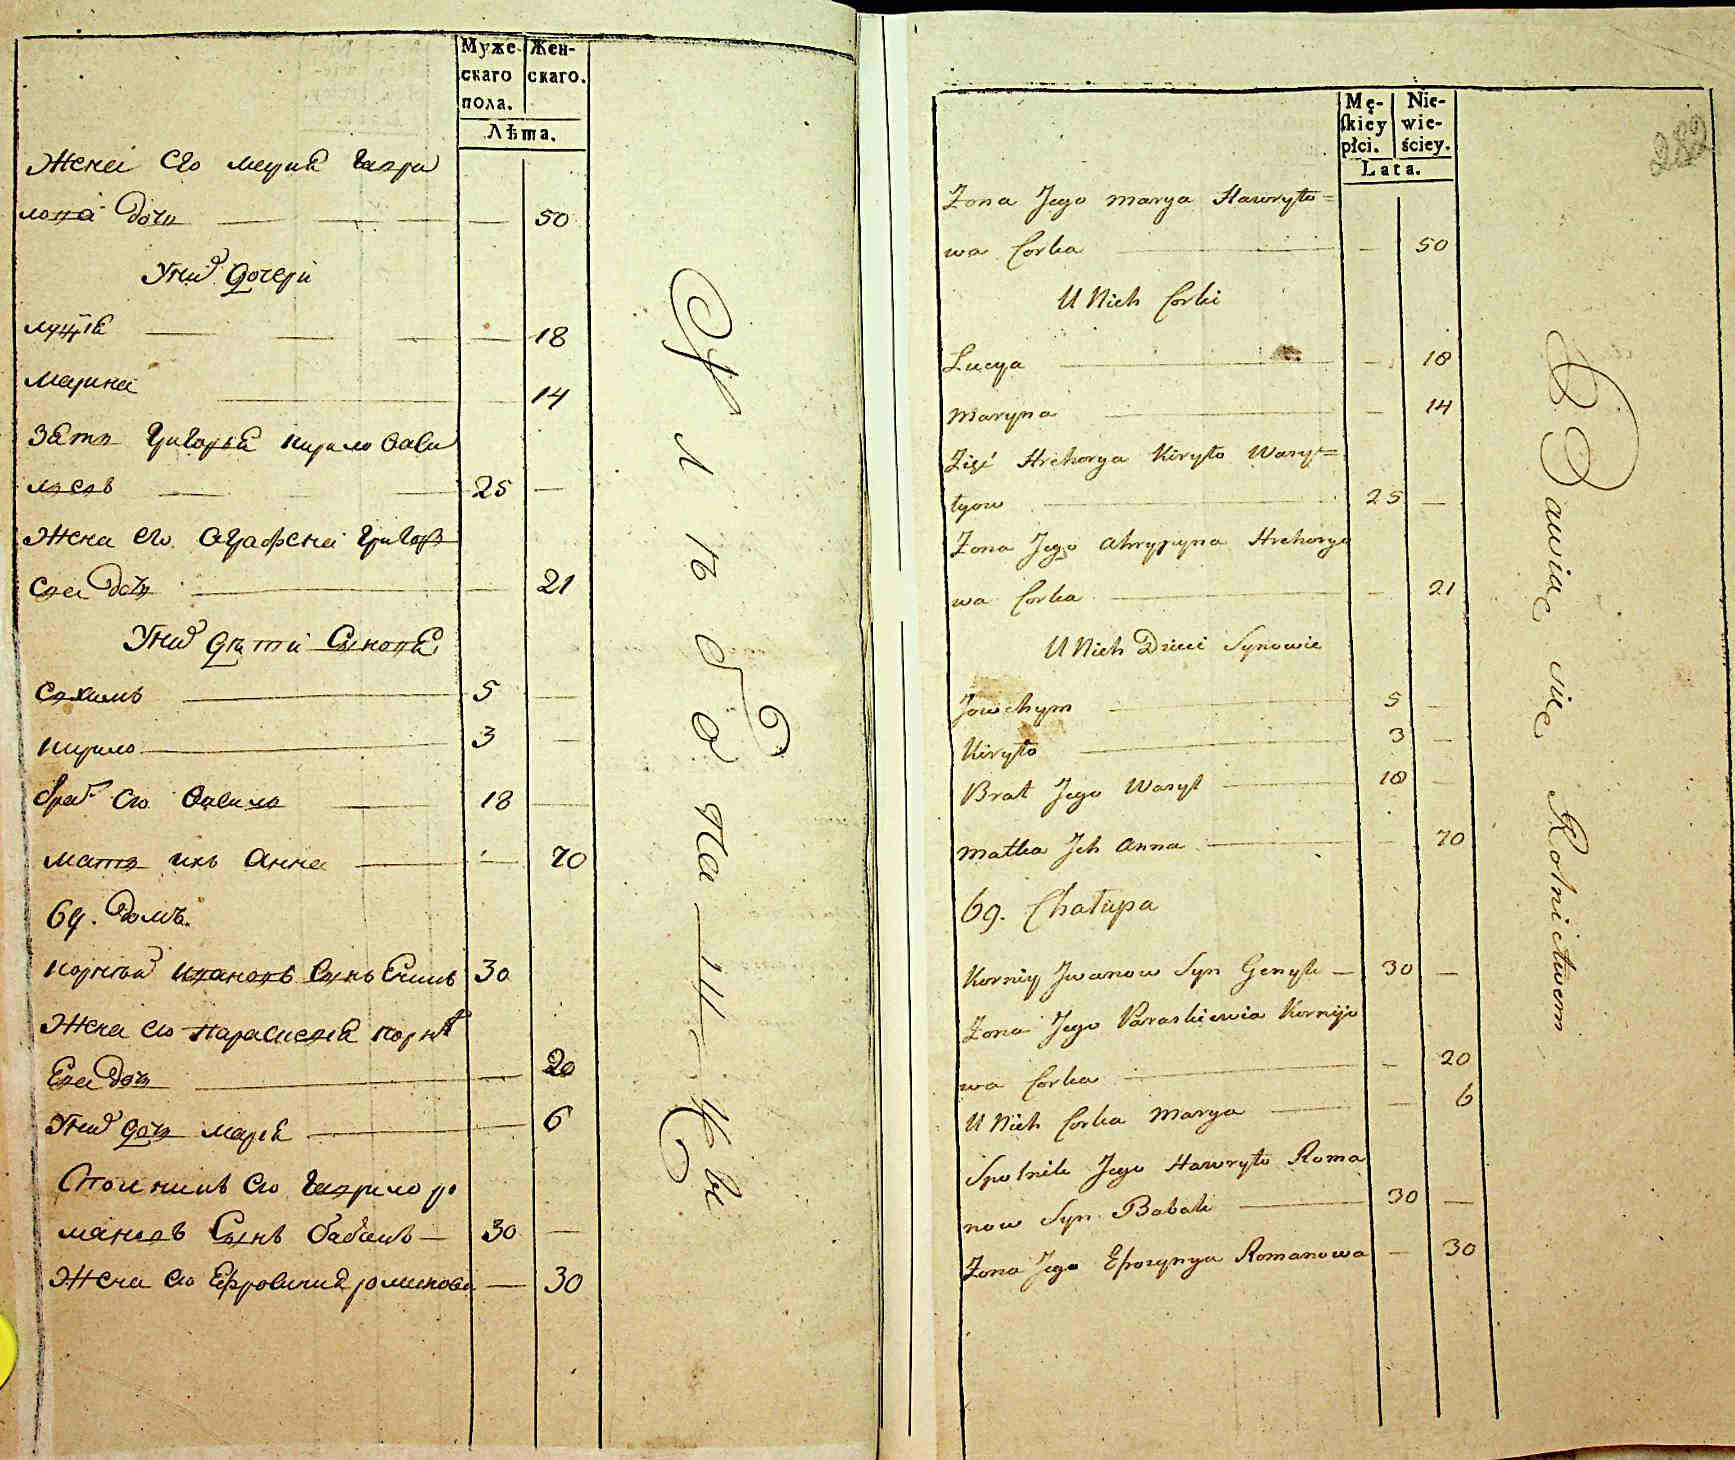 Муже-
скаго
пола.
Жен-
скаго.
Лѣта.
Жена Его мария Гаври
лова дочь — 50
У них дочери
луцѣя — 18
марина — 14
Зять Григорей кирило васи
льевъ 25 —
Жена его Аграфена Григорь
ева дочь — 21
У них дѣти Сыновья
Евхимъ 5 —
кирило 3 —
брат Его василь 18 —
мать ихъ Анна — 70
69. домъ.
корней ивановъ Сынъ 30
Жена его параскевия корнѣ
Ева дочь — 20
У них дочь мария — 6
Его Гаврило ро
мановъ Сынъ бабакъ 30 —
Жена Его Ефросиния романова — 30
Хлѣбопашцы
282
Mę-
skiey
płci.
Nie-
wie-
ściey.
Lata.
Żona Jego marya Hawryło=
wa Corka — 50
U Nich Corki
Lucya — 18
Maryna — 14
Zięć Hrehorya Kiryło Wasyl=
lyow 25 —
Żona Jego Ahrypyna Hrehorye
wa Corka — 21
U Nich Dzieci Synowie
Jowchym 5 —
Kiryło 3 —
Brat Jego Wasyl 18 —
Matka Jch Anna — 70
69. Chałupa
Korniy Jwanow Syn Genyk 30 —
Żona Jego Paraskiewia Kornijo
wa Corka — 20
U Nich Corka Marya — 6
Spolnik Jego Hawryło Roma
now Syn Babak 30 —
Żona Jego Eforynya Romanowa — 30
Bawiąc się Rolnictwem